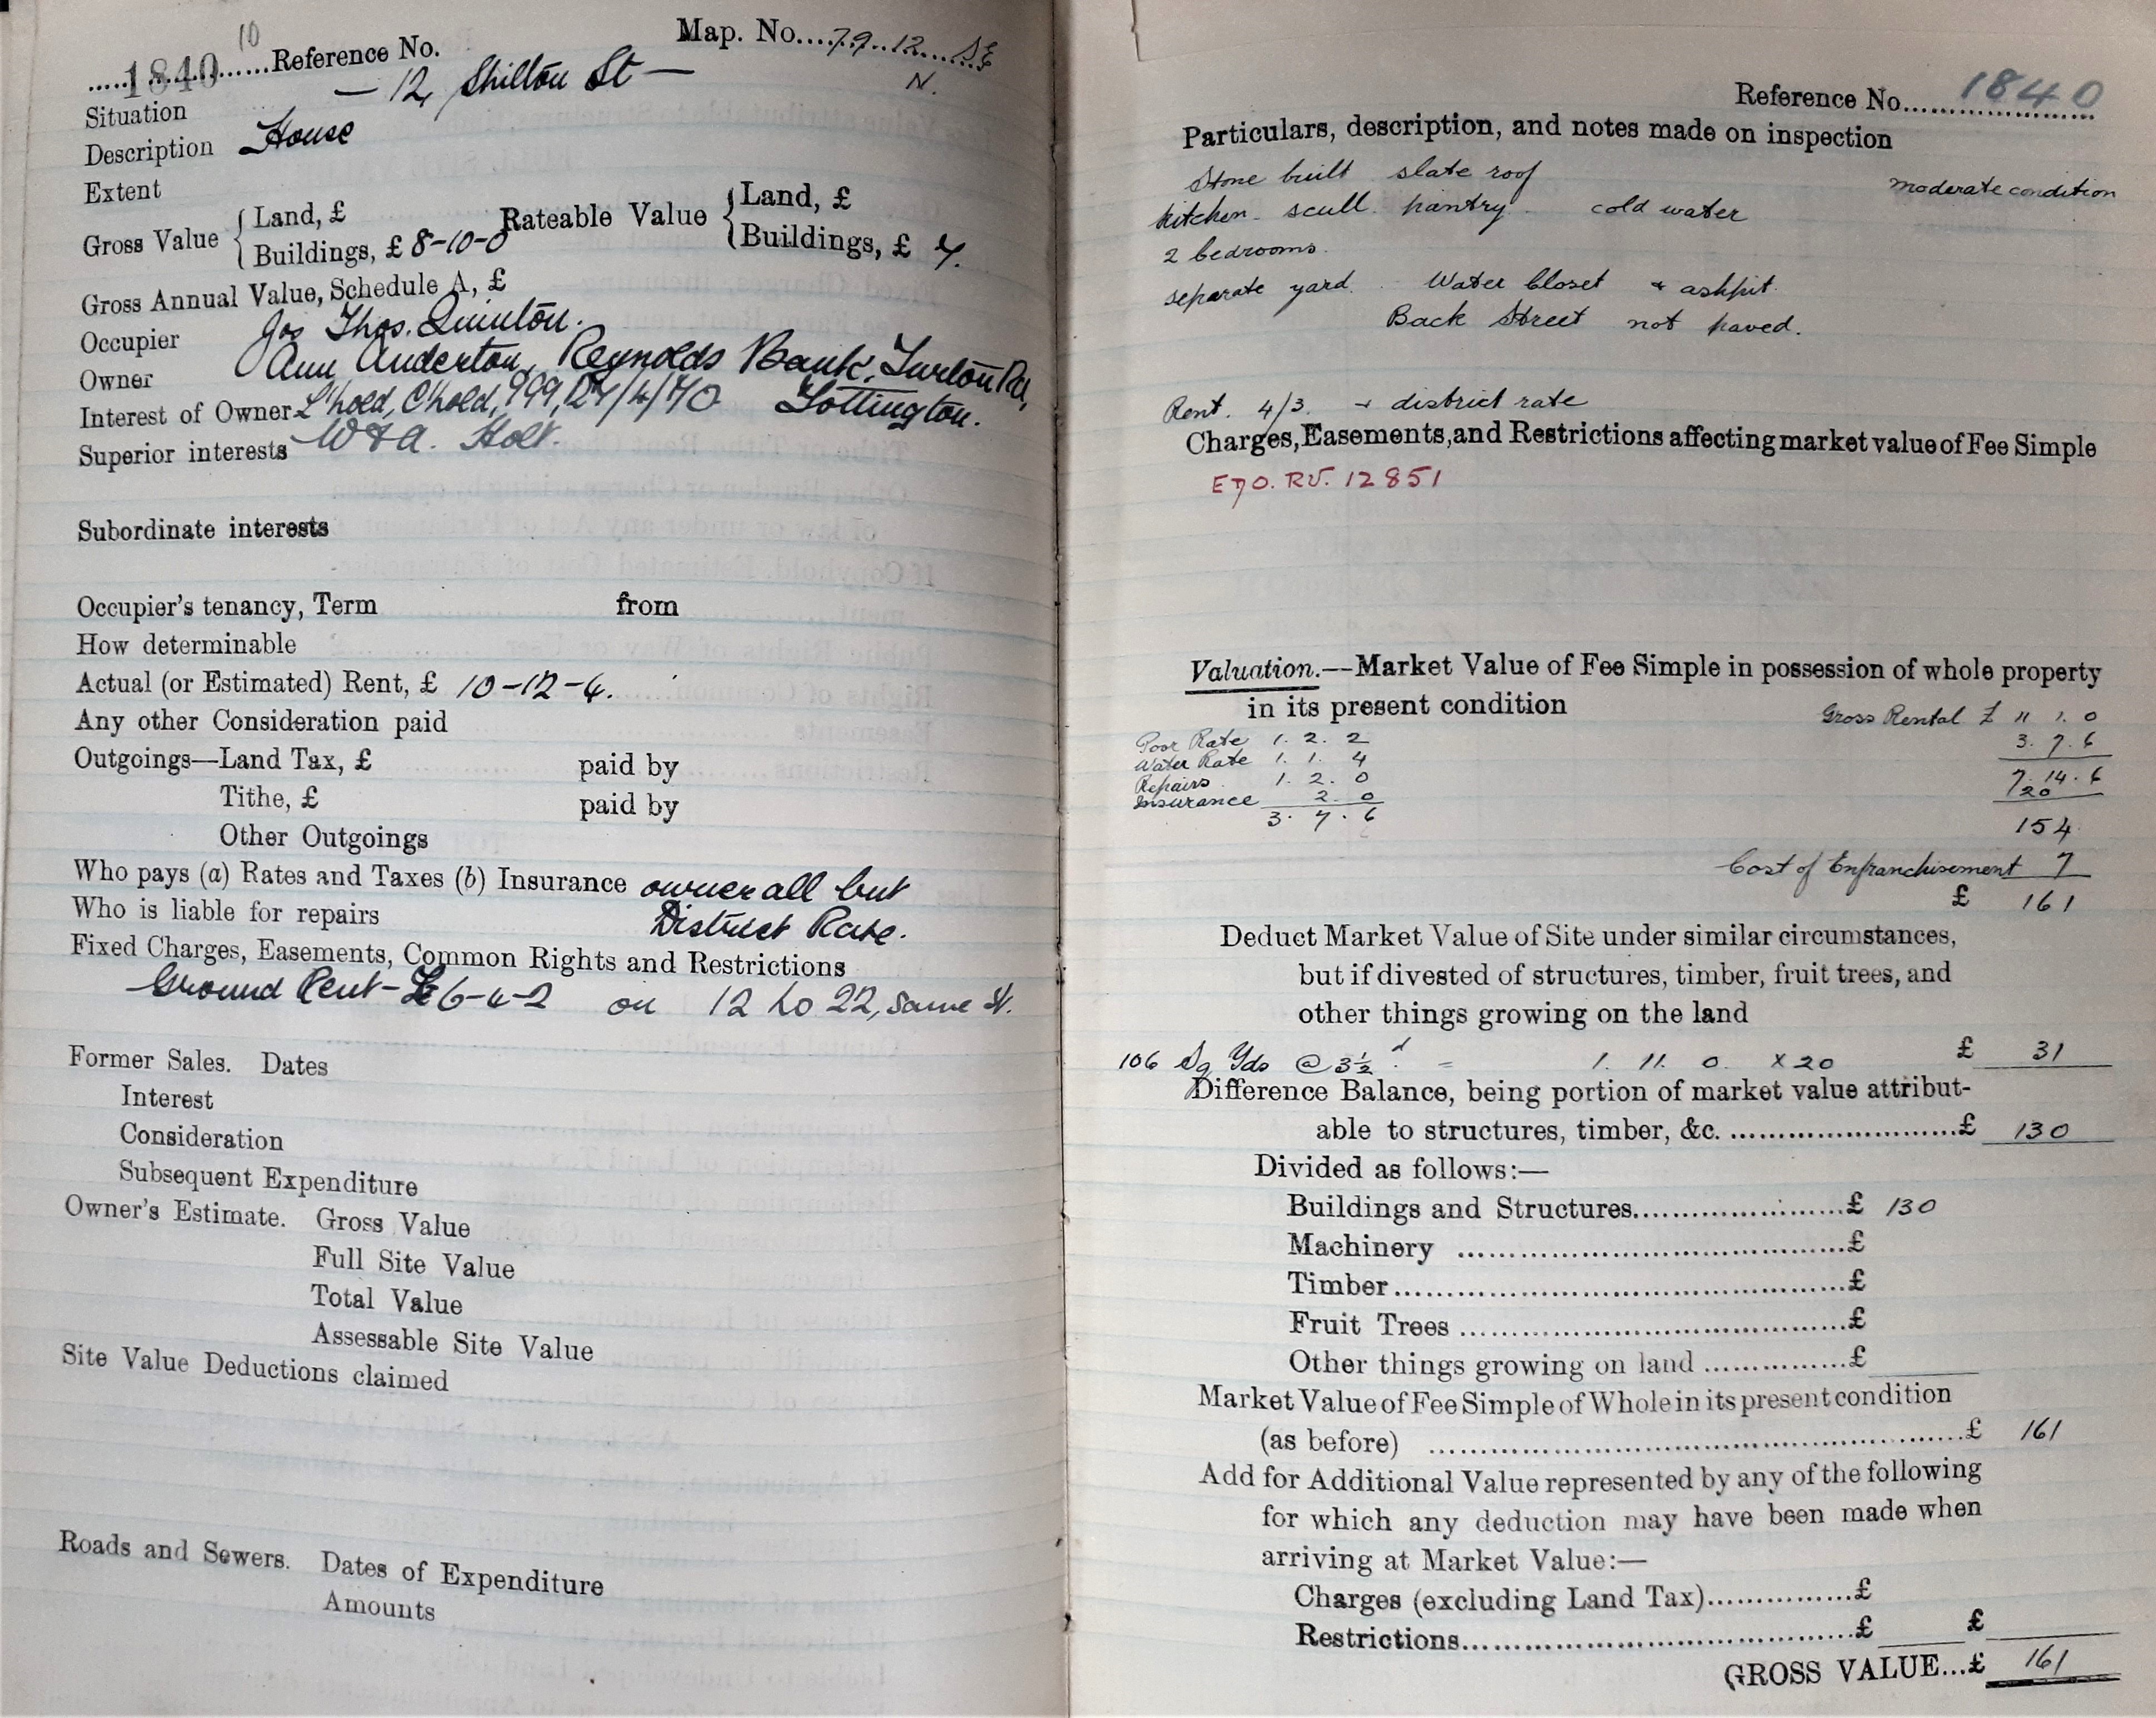 10
1840 Reference No. Map. No. 79.12 SE
N.
Situation — 12, Shilton St —
Description House
Extent
Gross Value { Land, £ Rateable Value { Land, £
Buildings, £ 8-10-0 Buildings, £ 7.
Gross Annual Value, Schedule A, £
Occupier Jos Thos. Quinton.
Owner Ann Anderton, Reynolds Bank, Turton Rd,
Interest of Owner L'hold, C'hold, 999, 27/4/70 Tottington.
Superior interests W & A. Holt.
Subordinate interests
Occupier's tenancy, Term from
How determinable
Actual (or Estimated) Rent, £ 10-12-6.
Any other Consideration paid
Outgoings—Land Tax, £ paid by
Tithe, £ paid by
Other Outgoings
Who pays (a) Rates and Taxes (b) Insurance owner all but
Who is liable for repairs District Rate.
Fixed Charges, Easements, Common Rights and Restrictions
Ground Rent - £6-4-2 on 12 to 22, same St.
Former Sales. Dates
Interest
Consideration
Subsequent Expenditure
Owner's Estimate. Gross Value
Full Site Value
Total Value
Assessable Site Value
Site Value Deductions claimed
Roads and Sewers. Dates of Expenditure
Amounts
Reference No. 1840
Particulars, description, and notes made on inspection
Stone built slate roof moderate condition
kitchen. scull. pantry. cold water
2 bedrooms.
separate yard. Water Closet & ashpit.
Back Street not paved.
Rent. 4/3. + district rate
Charges, Easements, and Restrictions affecting market value of Fee Simple
RV. 12851
Valuation.—Market Value of Fee Simple in possession of whole property
in its present condition Gross Rental £ 11 1. 0
Poor Rate 1. 2. 2 3. 7. 6
Water Rate 1. 1. 4 7. 14. 6
Repairs 1. 2. 0 20
Insurance 2. 0 154
3. 7. 6
Cost of Enfranchisement 7
£ 161
Deduct Market Value of Site under similar circumstances,
but if divested of structures, timber, fruit trees, and
other things growing on the land
106 Sq Yds @ 3½d = 1. 11. 0. x 20 £ 31
Difference Balance, being portion of market value attribut-
able to structures, timber, &c. £ 130
Divided as follows:—
Buildings and Structures £ 130
Machinery £
Timber £
Fruit Trees £
Other things growing on land £
Market Value of Fee Simple of Whole in its present condition
(as before) £ 161
Add for Additional Value represented by any of the following
for which any deduction may have been made when
arriving at Market Value:—
Charges (excluding Land Tax) £
Restrictions £ £
GROSS VALUE...£ 161